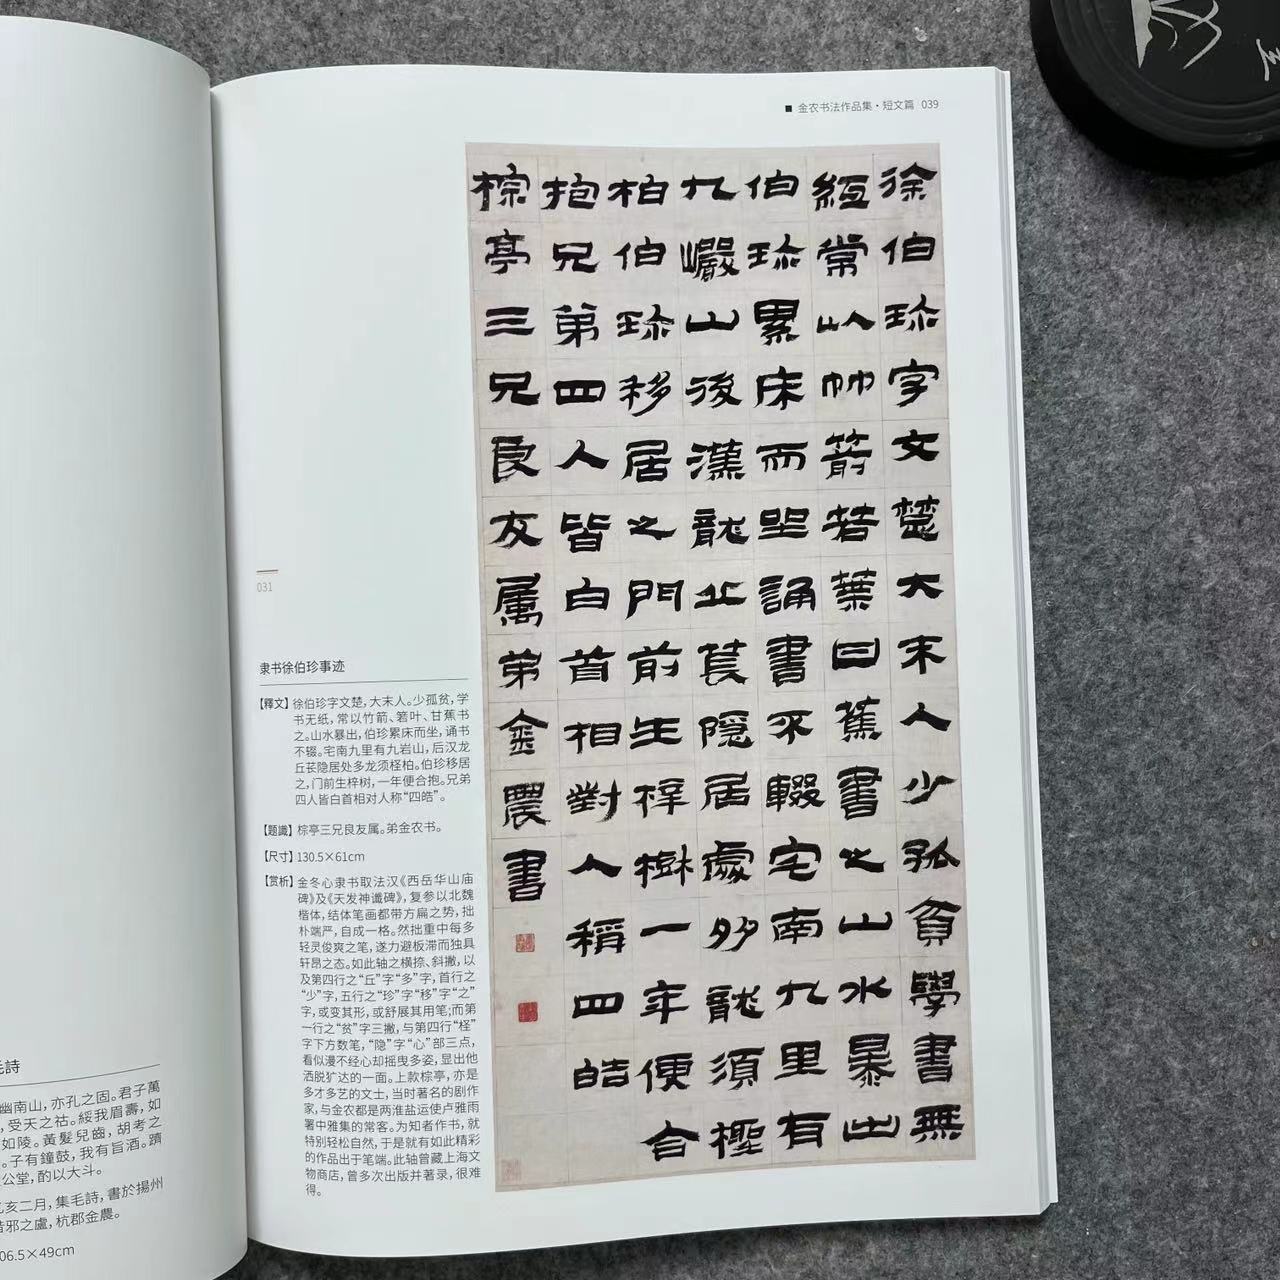 金农书法作品集·短文篇 039
徐伯珎字文楚大末人少孤貧學書無
紙常以竹箭若葉甘蕉書之山水暴出
伯珎累床而坐誦書不輟宅南九里有
九巖山後漢龍丘萇隱居處多龍須檉
柏伯珎移居之門前生梓樹一年便合
抱兄弟四人皆白首相對人稱四皓
棕亭三兄良友属弟金農書
031
隶书徐伯珍事迹
【釋文】徐伯珍字文楚,大末人。少孤贫,学
书无纸,常以竹箭、箬叶、甘蕉书
之。山水暴出,伯珍累床而坐,诵书
不辍。宅南九里有九岩山,后汉龙
丘苌隐居处多龙须柽柏。伯珍移居
之,门前生梓树,一年便合抱。兄弟
四人皆白首相对人称“四皓”。
【题識】棕亭三兄良友属。弟金农书。
【尺寸】130.5×61cm
【赏析】金冬心隶书取法汉《西岳华山庙
碑》及《天发神谶碑》,复参以北魏
楷体,结体笔画都带方扁之势,拙
朴端严,自成一格。然拙重中每多
轻灵俊爽之笔,遂力避板滞而独具
轩昂之态。如此轴之横捺、斜撇,以
及第四行之“丘”字“多”字,首行之
“少”字,五行之“珍”字“移”字“之”
字,或变其形,或舒展其用笔;而第
一行之“贫”字三撇,与第四行“柽”
字下方数笔,“隐”字“心”部三点,
看似漫不经心却摇曳多姿,显出他
洒脱犷达的一面。上款棕亭,亦是
多才多艺的文士,当时著名的剧作
家,与金农都是两淮盐运使卢雅雨
署中雅集的常客。为知者作书,就
特别轻松自然,于是就有如此精彩
的作品出于笔端。此轴曾藏上海文
物商店,曾多次出版并著录,很难
得。
毛詩
幽南山,亦孔之固。君子萬
,受天之祜。綏我眉壽,如
如陵。黃髮兒齒,胡考之
。子有鐘鼓,我有旨酒。躋
公堂,酌以大斗。
乙亥二月,集毛詩,書於揚州
昔邪之盧,杭郡金農。
06.5×49cm